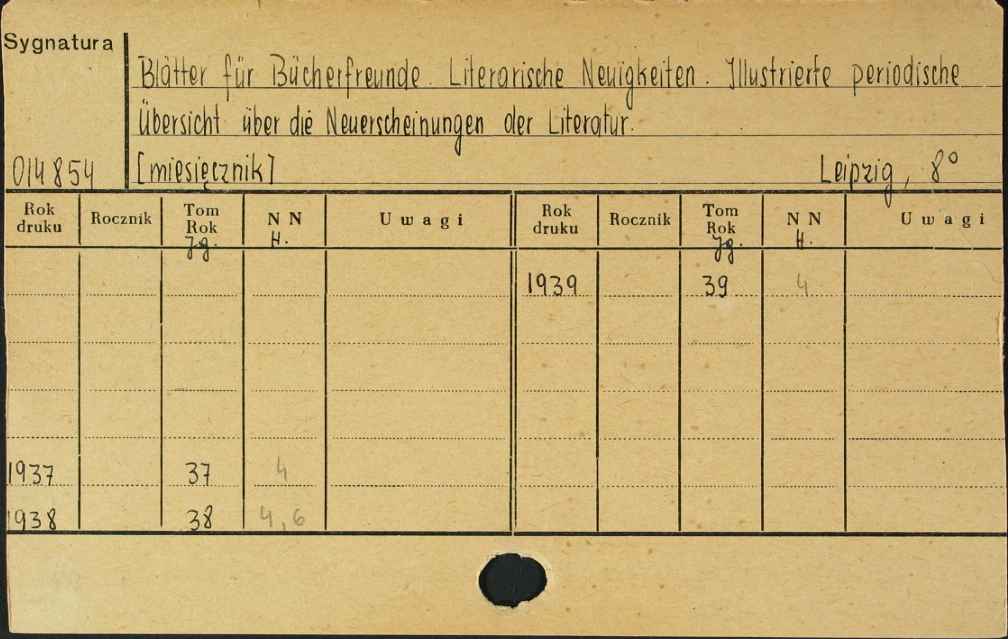 Sygnatura
Blätter für Bücherfreunde. Literarische Neuigkeiten. Illustrierte periodische
Übersicht über die Neuerscheinungen der Literatur.
014854 [miesięcznik] Leipzig, 8°
Rok druku Rocznik Tom Rok Jg. N N H. Uwagi Rok druku Rocznik Tom Rok Jg. N N H. Uwagi
1939 39 4
1937 37 4
1938 38 4, 6